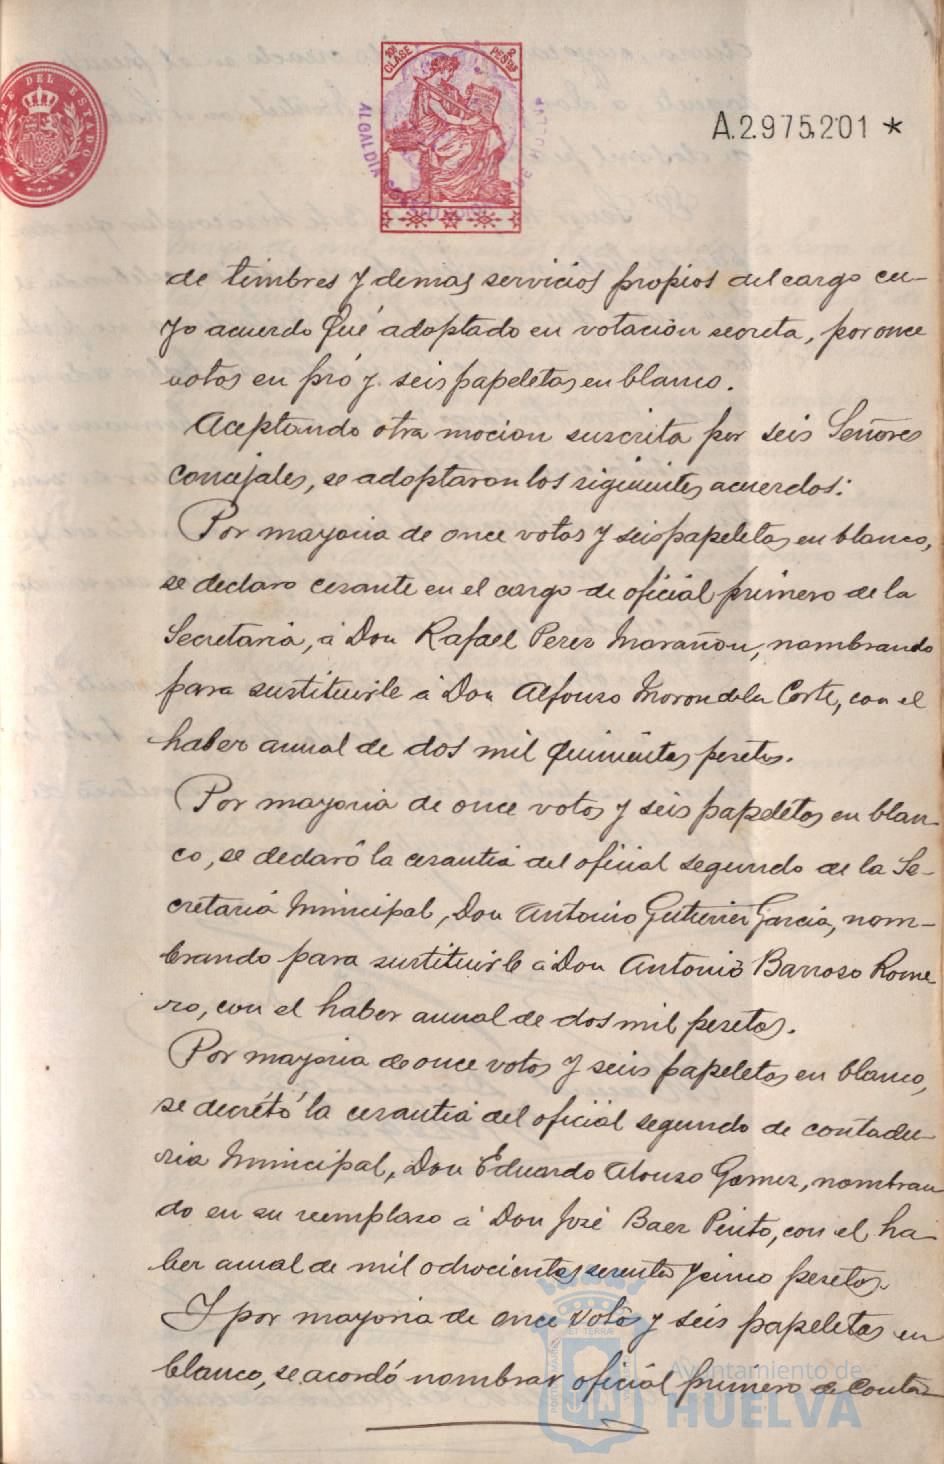 10ª CLASE
2 PESETAS
ALCALDIA
DE HUELVA
DEL ESTADO
A.2.975.201 *
de timbres y demas servicios propios del cargo cu-
yo acuerdo fué adoptado en votación secreta, por once
votos en pró y seis papeletas en blanco.
Aceptando otra mocion suscrita por seis Señores
Concejales, se adoptaron los siguientes acuerdos:
Por mayoria de once votos y seis papeletas en blanco,
se declaro cesante en el cargo de oficial primero de la
Secretaria, á Don Rafael Perez Marañon, nombrando
para sustituirle á Don Alfonso Moron de la Corte, con el
haber anual de dos mil quinientas pesetas.
Por mayoria de once votos y seis papeletas en blan-
co, se declaró la cesantia del oficial segundo de la Se-
cretaria Municipal, Don Antonio Gutierrez Garcia, nom-
brando para sustituirle á Don Antonio Barroso Rome
ro, con el haber anual de dos mil pesetas.
Por mayoria de once votos y seis papeletas en blanco,
se decretó la cesantia del oficial segundo de contadu-
ria Municipal, Don Eduardo Alonso Gomez, nombran
do en su reemplaso á Don José Baer Pinto, con el ha-
ber anual de mil ochocientas sesenta y cinco pesetas.
Y por mayoria de once votos y seis papeletas en
blanco, se acordó nombrar oficial primero de Conta-
Ayuntamiento de
HUELVA